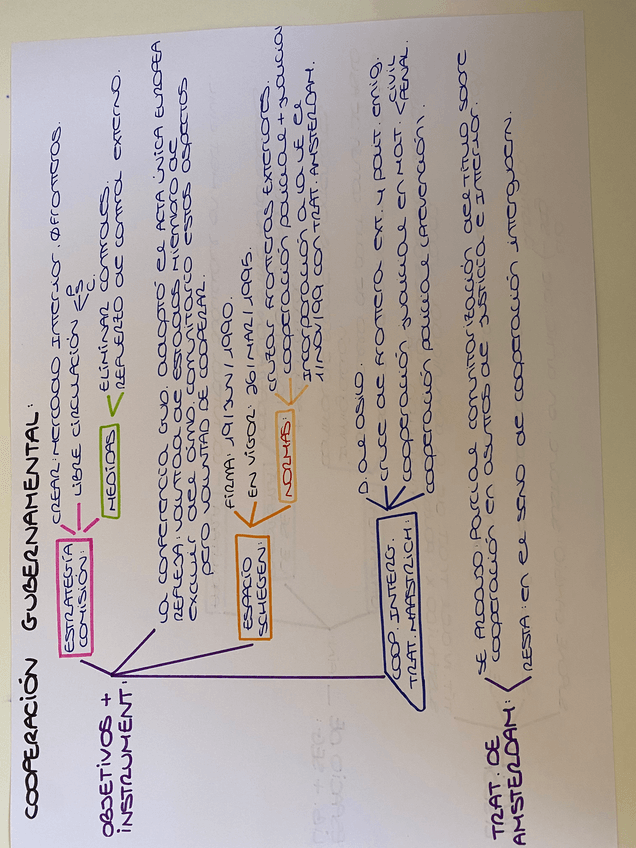 COOPERACIÓN GUBERNAMENTAL:
OBJETIVOS +
INSTRUMENT:
ESTRATEGIA
COMISIÓN:
CREAR MERCADO INTERIOR. Ø FRONTEROS.
LIBRE CIRCULACIÓN < P
S
C.
MEDIDAS <
ELIMINAR CONTROLES.
REFUERZO DE CONTROL EXTERNO.
LA CONFERENCIA GUB. ADOPTÓ EL ACTA ÚNICA EUROPEA
REFLEJA: VOLUNTAD DE ESTADOS MIEMBRO DE
EXCLUIR DEL ÁMB. COMUNITARIO ESTOS ASPECTOS
PERO VOLUNTAD DE COOPERAR.
ESPACIO
SCHEGEN:
FIRMA: 19/JUN/1990.
EN VIGOR: 26/MAR/1995.
NORMAS:
CRUZAR FRONTERAS EXTERIORES.
COOPERACIÓN POLICIAL + JUDICIAL
INCORPORACIÓN A LA UE EL
1/NOV/99 CON TRAT. AMSTERDAM.
COOP. INTERG.
TRAT. MAASTRICH:
D. DE ASILO.
CRUCE DE FRONTERA EXT. Y POLIT. EMIG.
COOPERACIÓN JUDICIAL EN MAT. < CIVIL
PENAL.
COOPERACIÓN POLICIAL (PREVENCIÓN).
TRAT. DE
AMSTERDAM:
SE ABORDÓ: PARCIAL COMUNITARIZACIÓN DEL TÍTULO SOBRE
COOPERACIÓN EN ASUNTOS DE JUSTICIA E INTERIOR.
RESTA: EN EL SENO DE COOPERACIÓN INTERGUBERN.